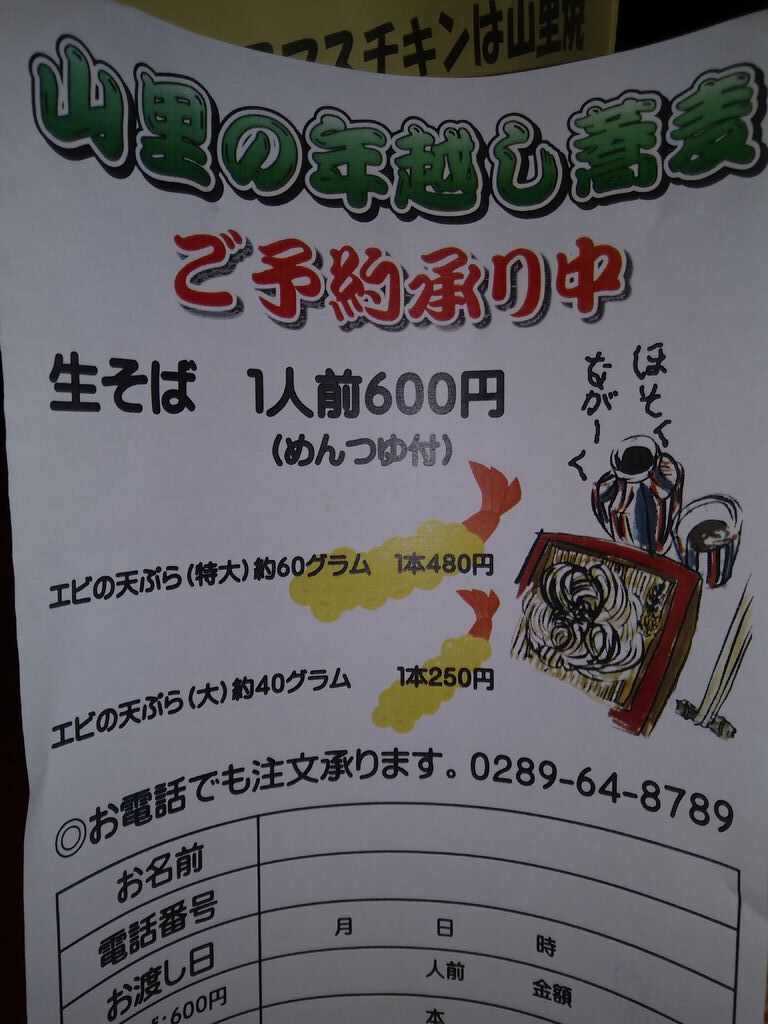 マスチキンは山里焼
山里の年越し蕎麦
ご予約承り中
生そば 1人前600円
(めんつゆ付)
ほそく
ながーく
エビの天ぷら(特大)約60グラム 1本480円
エビの天ぷら(大)約40グラム 1本250円
◎お電話でも注文承ります。0289-64-8789
お名前
電話番号
お渡し日 月 日 時
600円 人前 金額
本